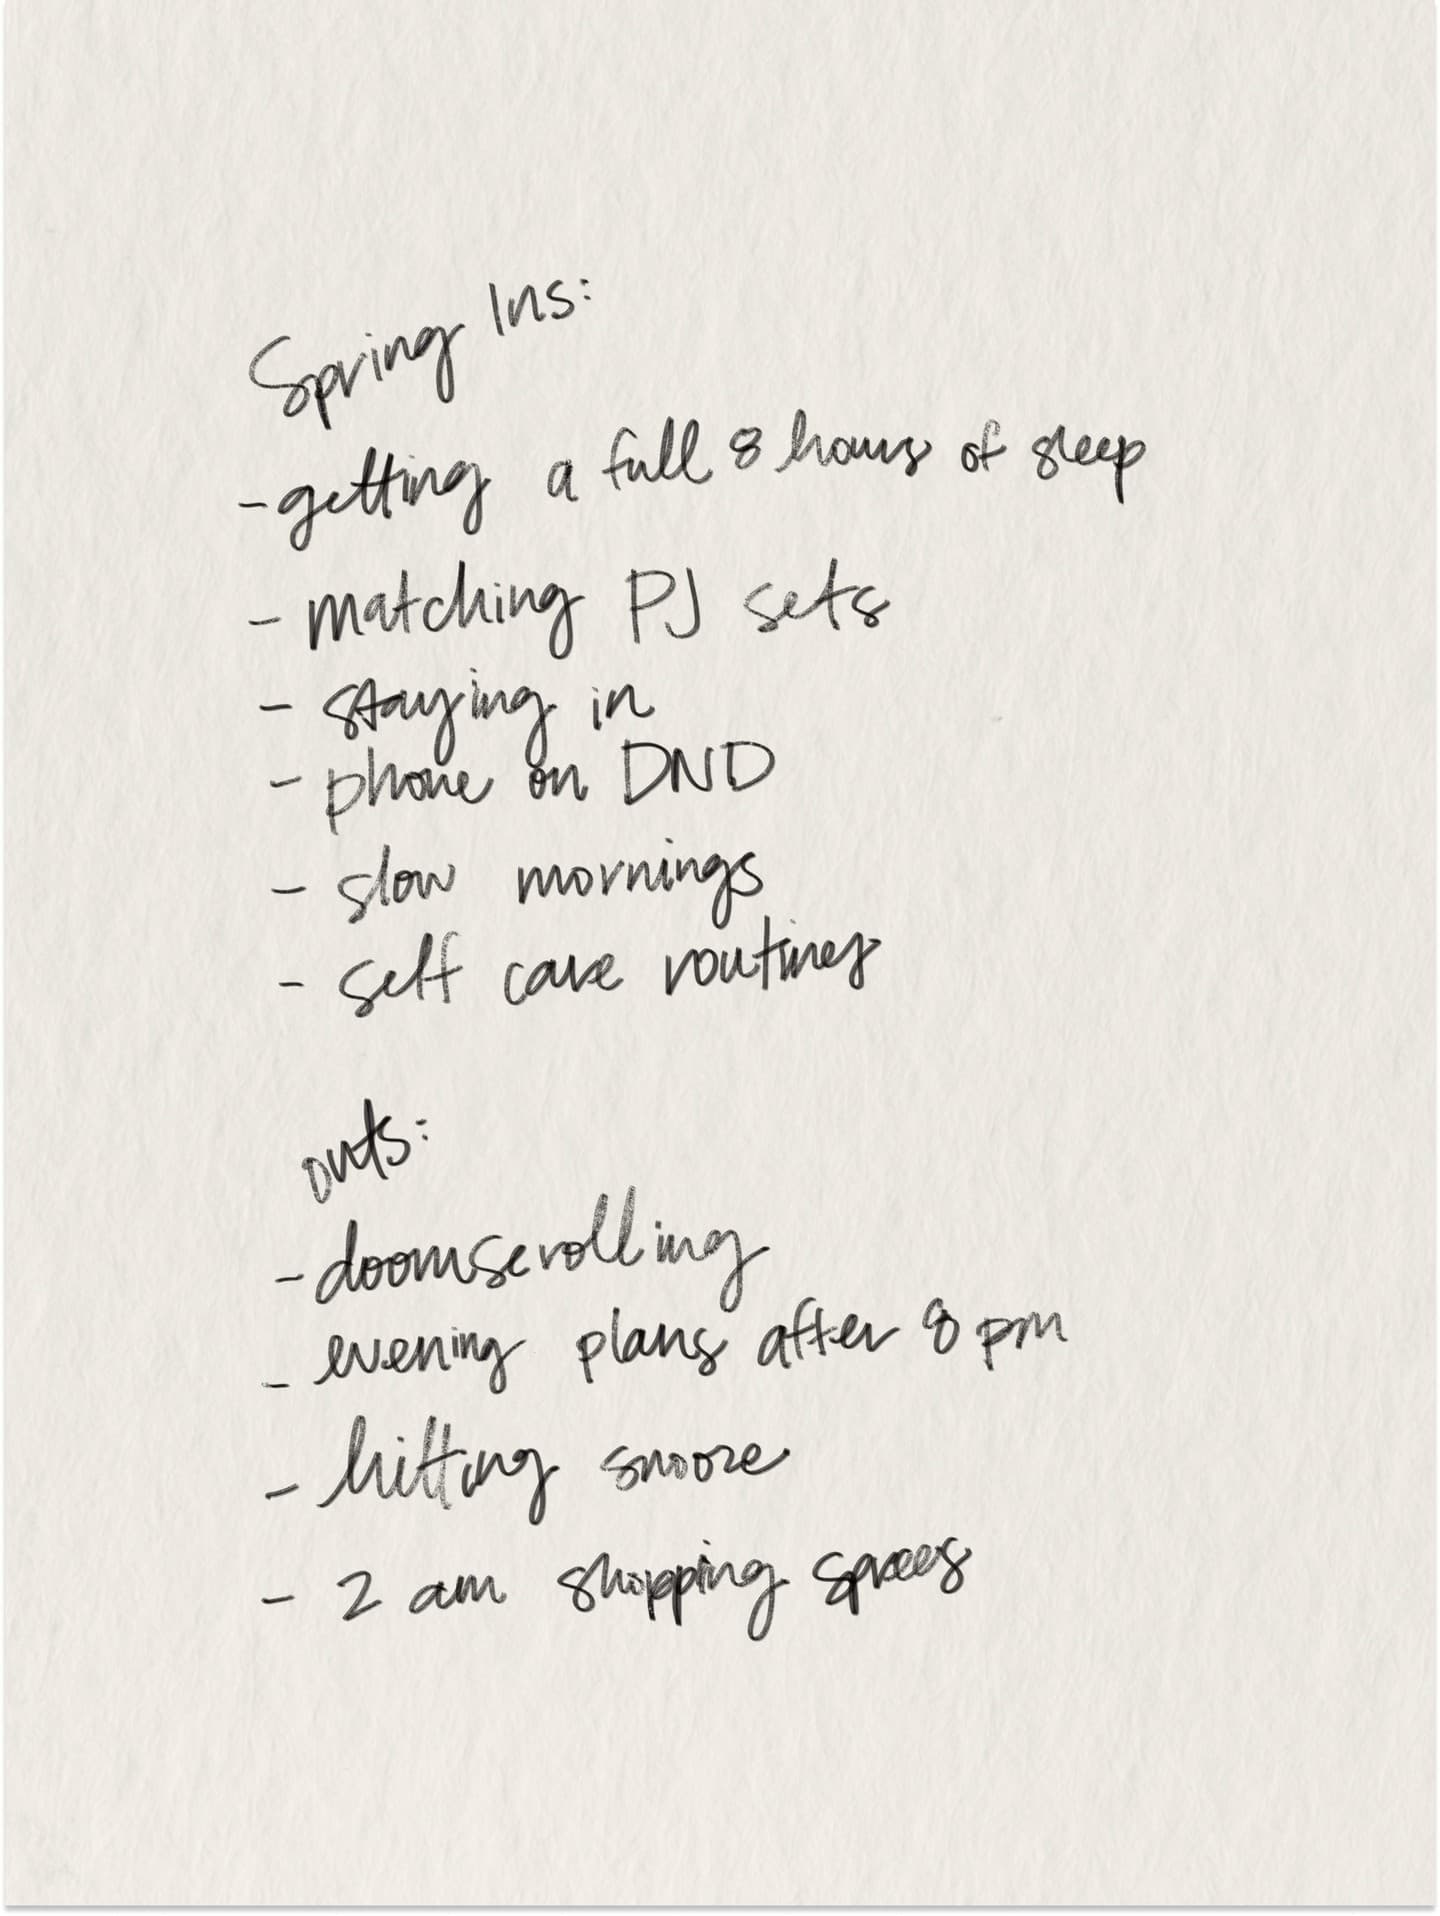 Spring Ins:
- getting a full 8 hours of sleep
- matching PJ sets
- staying in
- phone on DND
- slow mornings
- self care routines
outs:
- doomscrolling
- evening plans after 8 pm
- hitting snooze
- 2 am shopping sprees